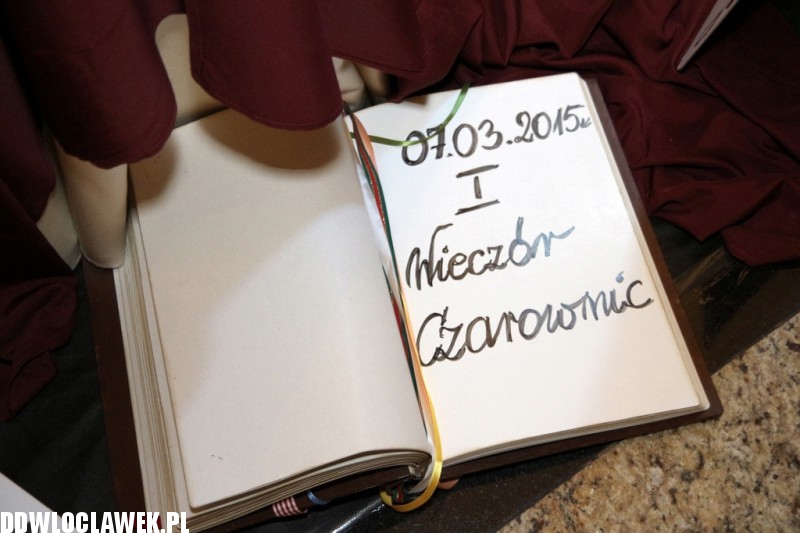 07.03.2015r
I
Wieczór
Czarownic
DDWLOCLAWEK.PL